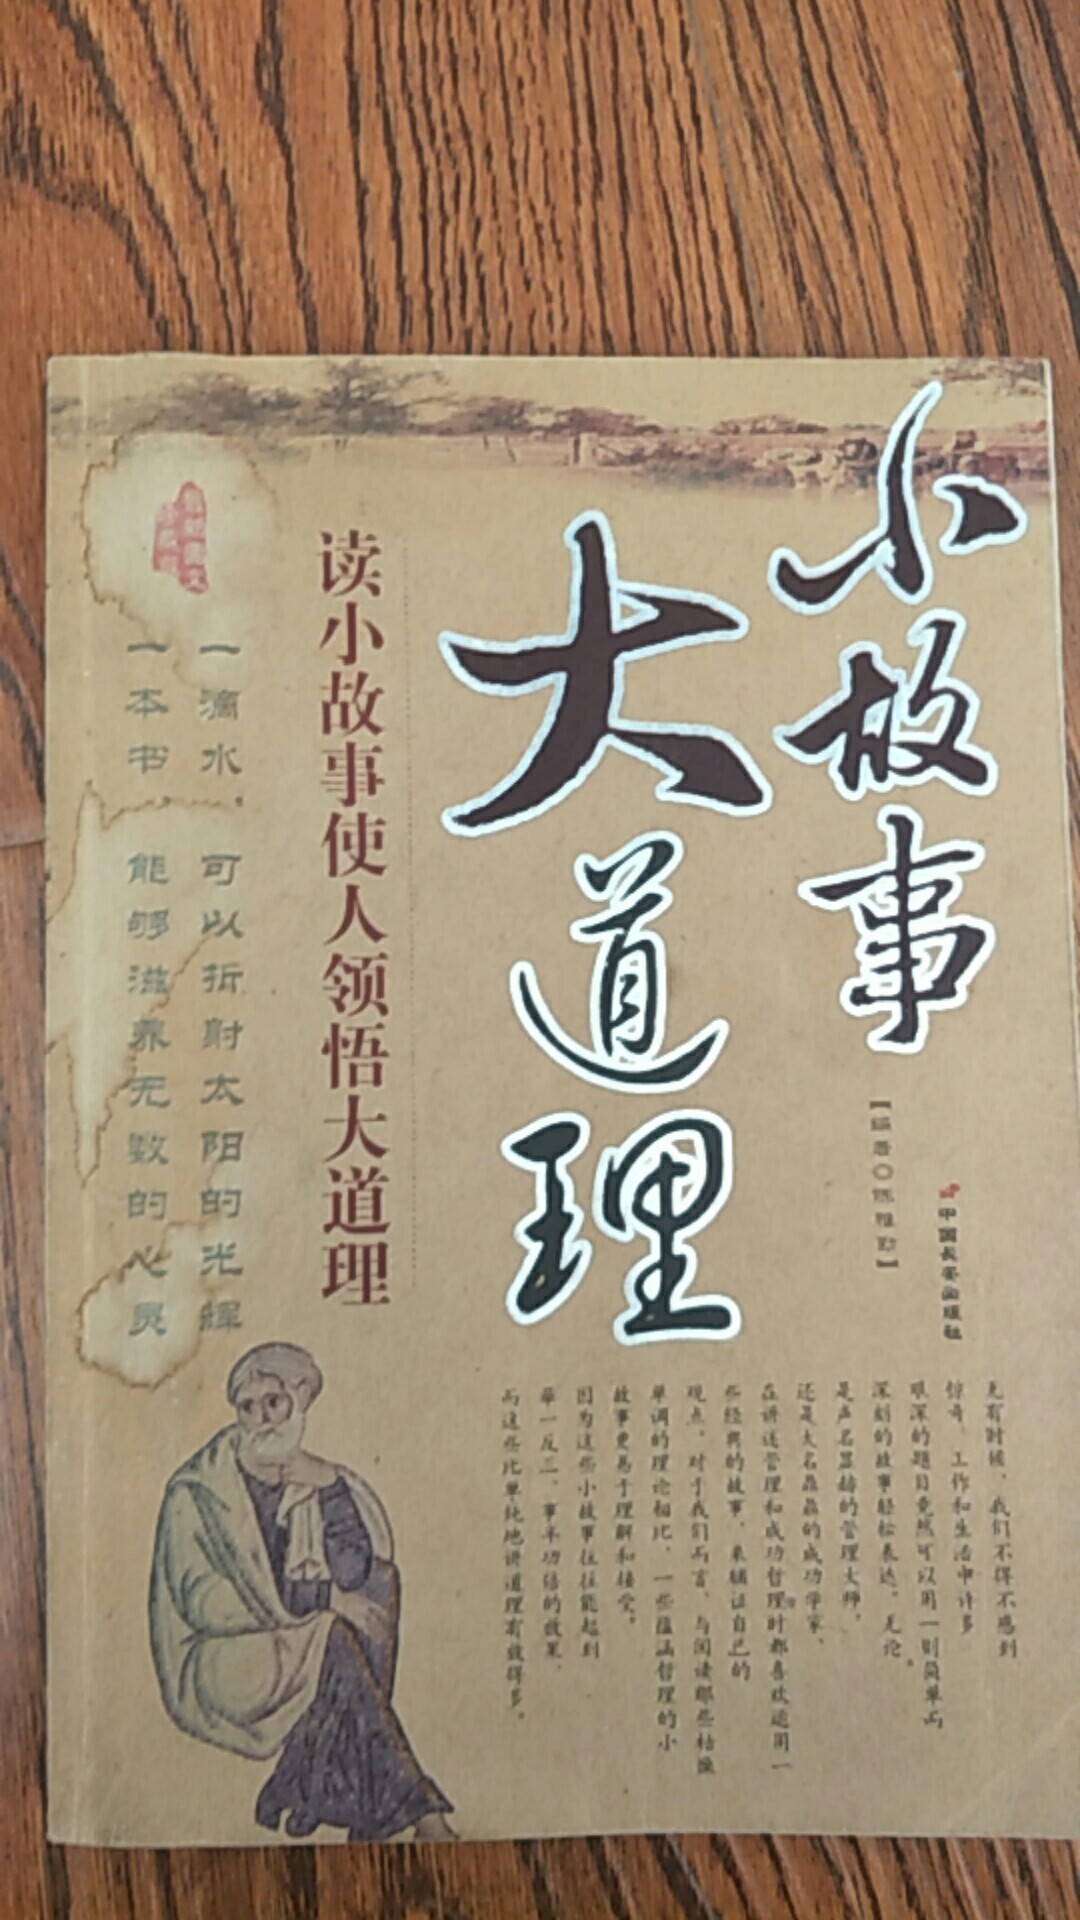 小故事
大道理
【编著◎陈雅勤】
中国长安出版社
读小故事使人领悟大道理
一滴水，可以折射太阳的光辉
一本书，能够滋养无数的心灵
更有时候，我们不得不感到
惊奇，工作和生活中许多
艰深的题目竟然可以用一则简单而
深刻的故事轻松表达。无论
是声名显赫的管理大师，
还是大名鼎鼎的成功学家，
在讲述管理和成功哲理时都喜欢运用一
些经典的故事，来辅证自己的
观点。对于我们而言，与阅读那些枯燥
单调的理论相比，一些蕴涵哲理的小
故事更易于理解和接受。
因为这些小故事往往能起到
举一反三、事半功倍的效果，
而这些比单纯地讲道理有效得多。